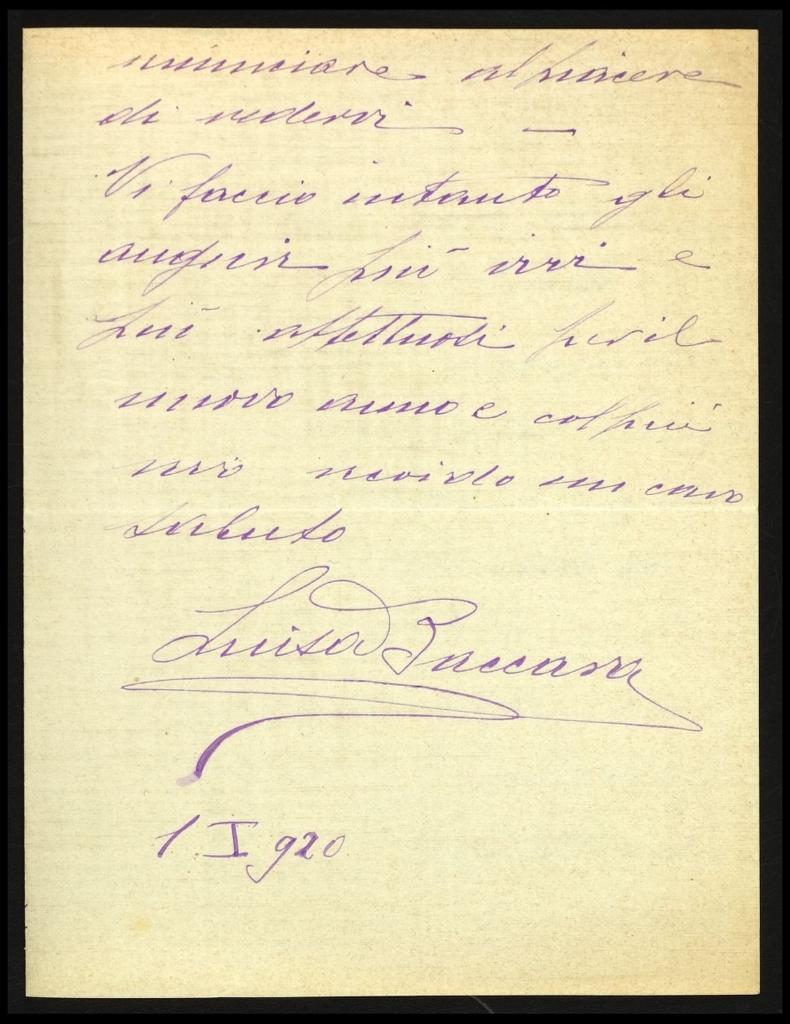 rinunciare al piacere
di vedervi —
Vi faccio intanto gli
auguri più vivi e
più affettuosi per il
nuovo anno e col più
vivo ricordo un caro
saluto
Luisa Baccara
1 I 920